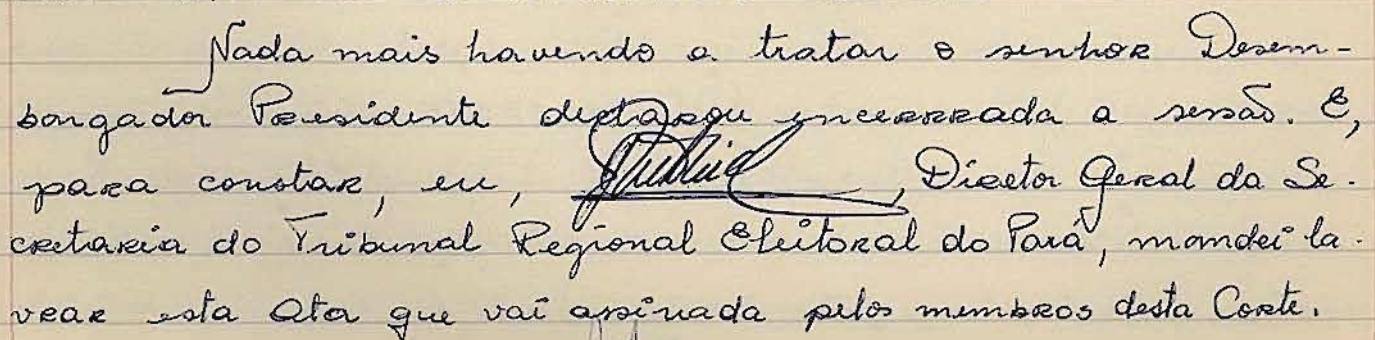 Nada mais havendo a tratar o senhor Desem-
bargador Presidente declarou encerrada a sessão. E,
para constar, eu, , Diretor Geral da Se-
cretaria do Tribunal Regional Eleitoral do Pará, mandei la-
vrar esta Ata que vai assinada pelos membros desta Corte.